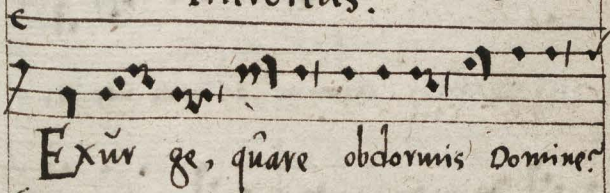 Introitus.
Exur ge, quare obdormis Domine?